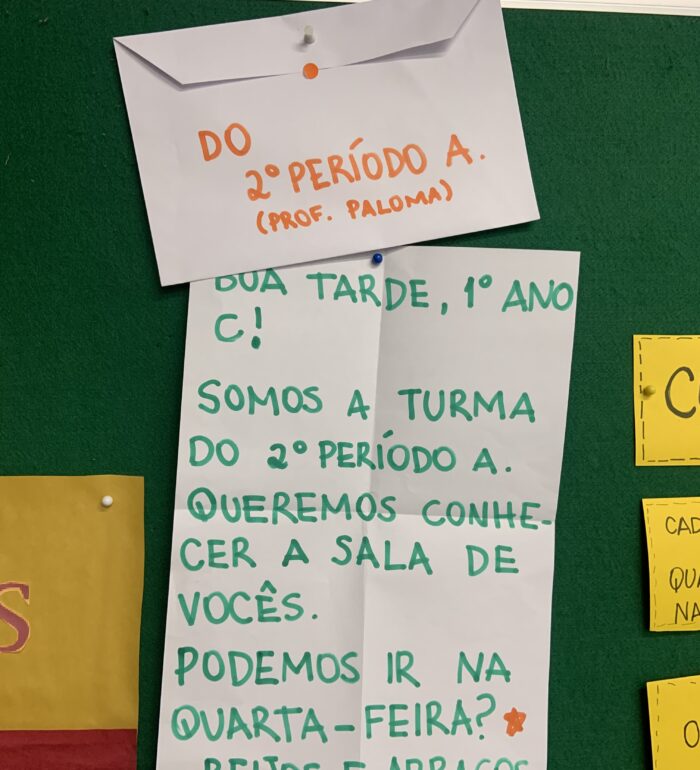 DO
2º PERÍODO A.
(PROF. PALOMA)
BOA TARDE, 1º ANO
C!
SOMOS A TURMA
DO 2º PERÍODO A.
QUEREMOS CONHE-
CER A SALA DE
VOCÊS.
PODEMOS IR NA
QUARTA-FEIRA?
BEIJOS E ABRAÇOS
S
C
CAD
QU
NA
O